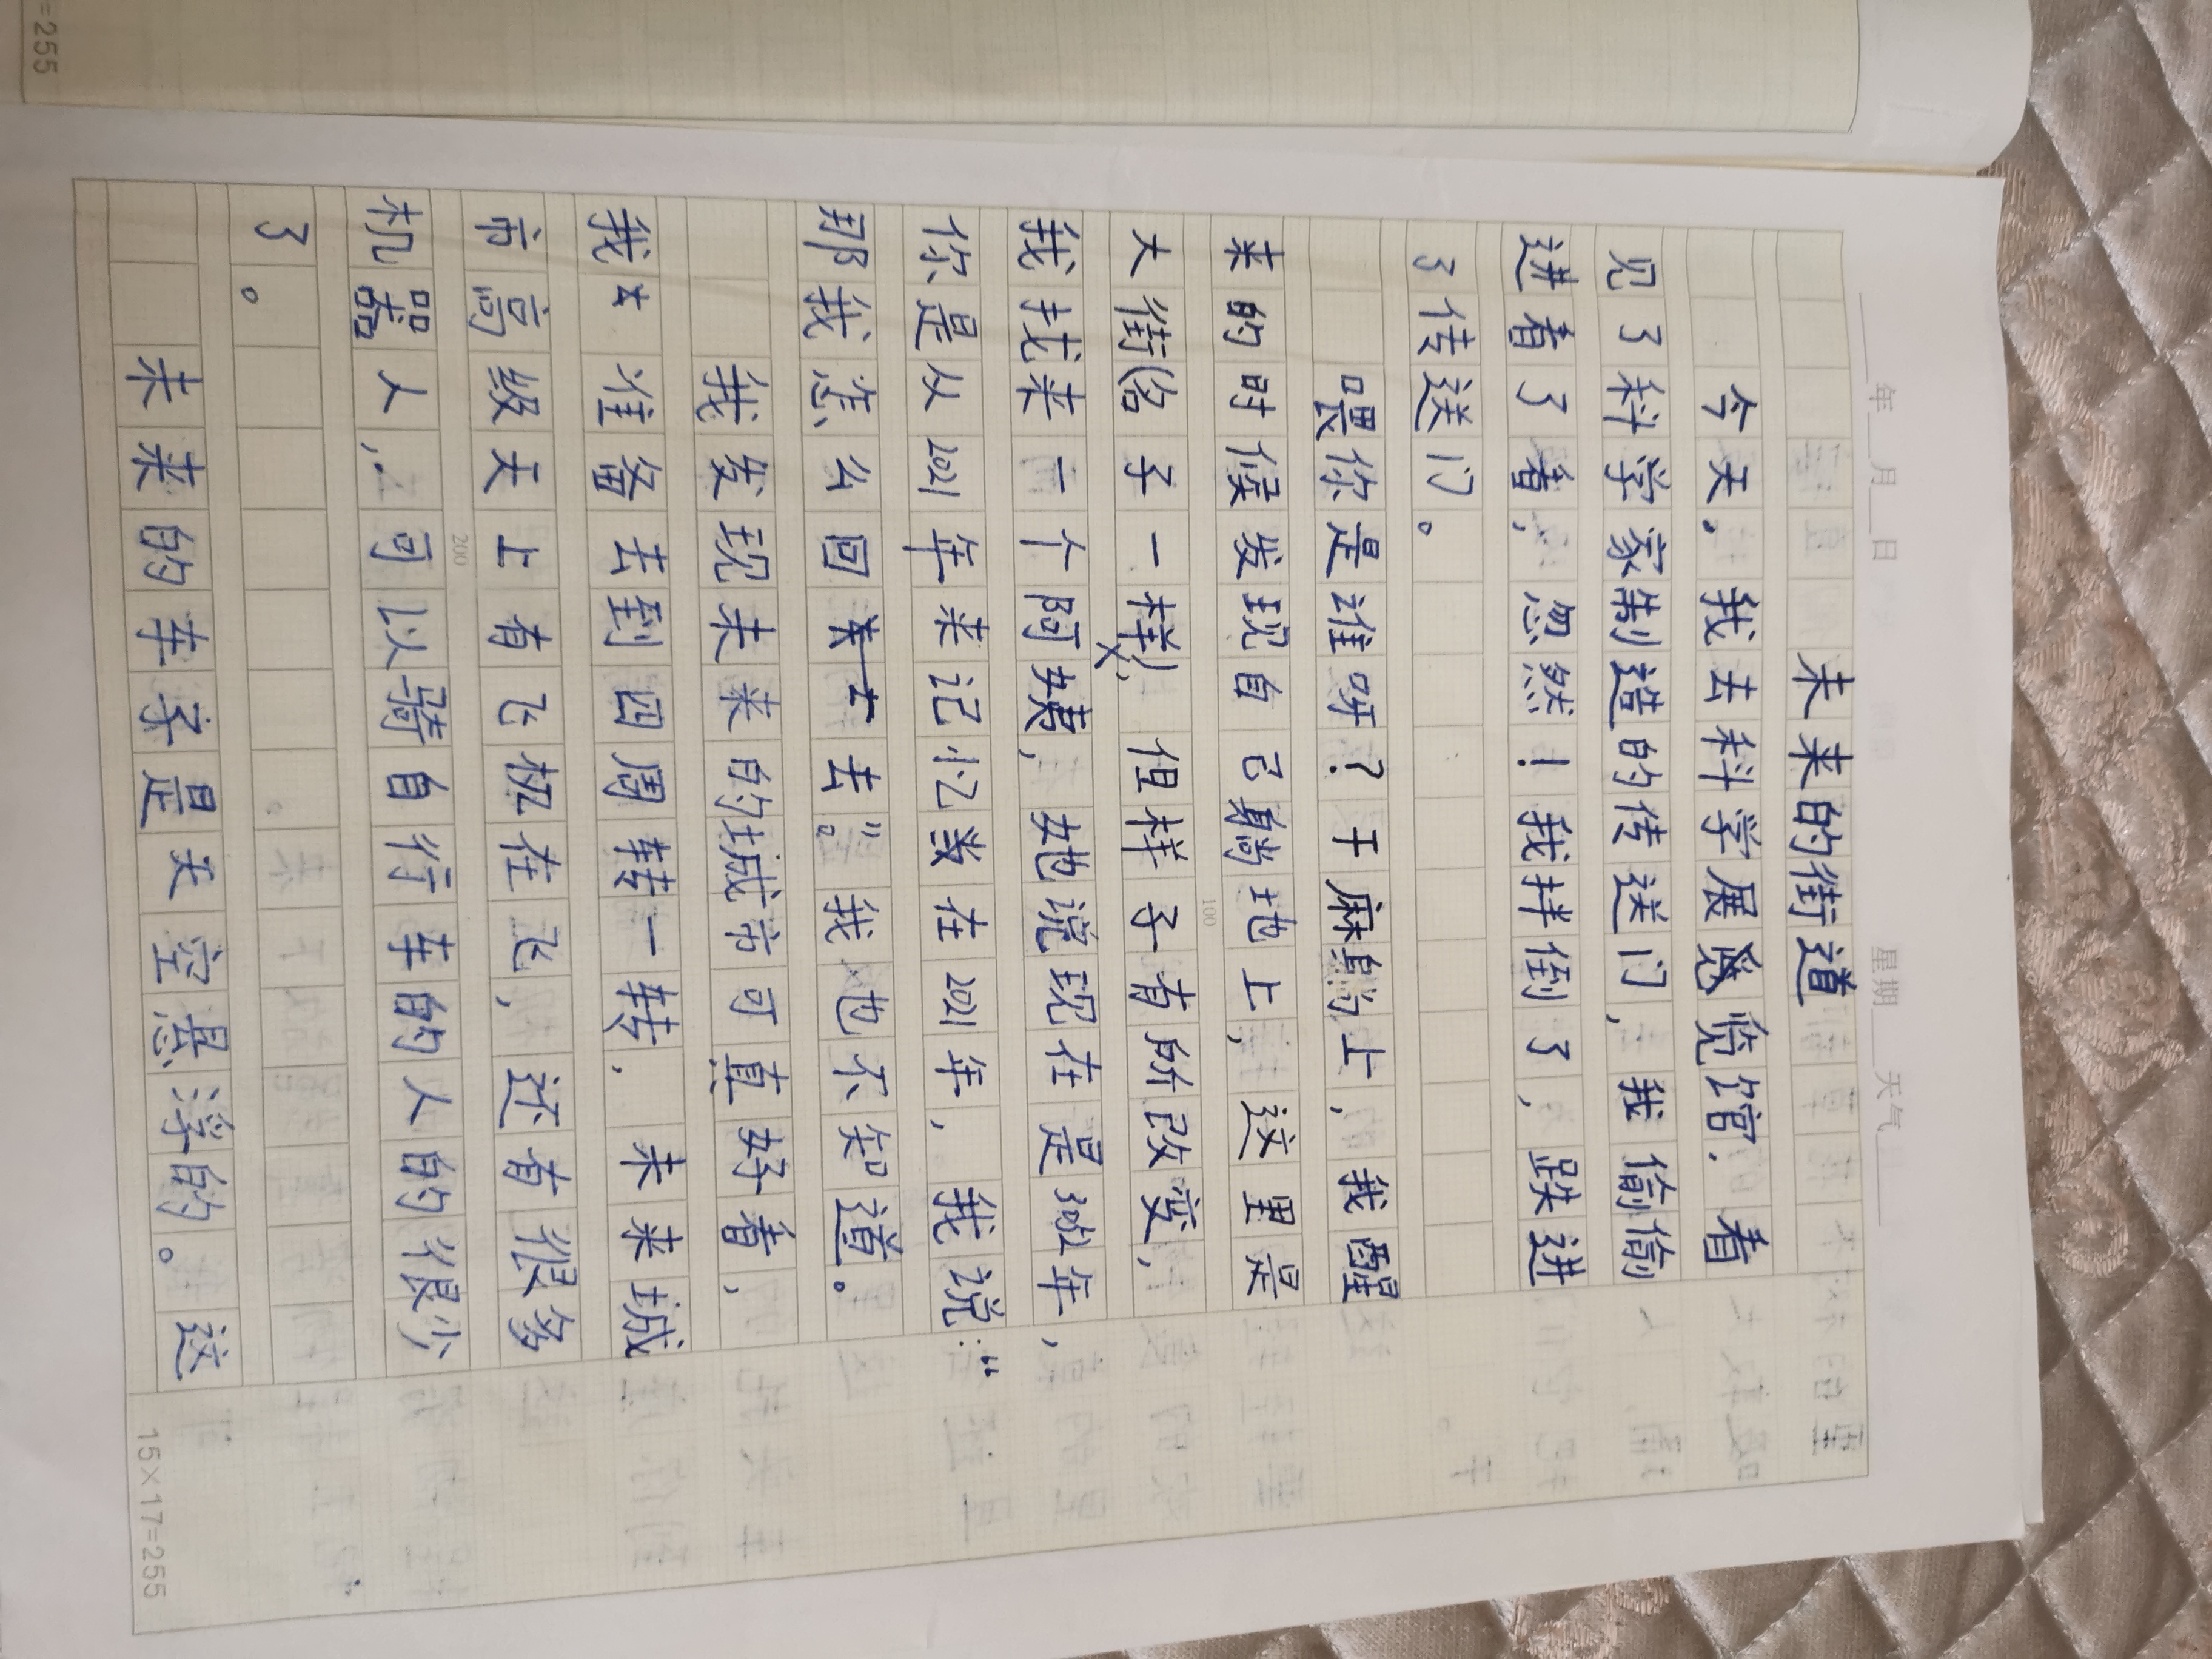 =255
___年___月___日 星期___天气___
未来的街道
今天，我去科学展览馆，看
见了科学家制造的传送门，我偷偷
进看了看，忽然！我拌倒了，跌进
了传送门。
喂你是谁呀？干麻上，我醒
来的时候发现自己躺地上，这里是
大街(名子一样)，但样子有所改变，
100
我找来一个阿姨，她说现在是3021年，
你是从2021年来记忆当在2021年，我说：“
那我怎么回去”。我也不知道。
我发现未来的城市可真好看，
我准备去到四周转一转，未来城
市高级天上有飞机在飞，还有很多
200
机器人，可以骑自行车的人的很少
了。
未来的车子是天空悬浮的。这
15×17=255